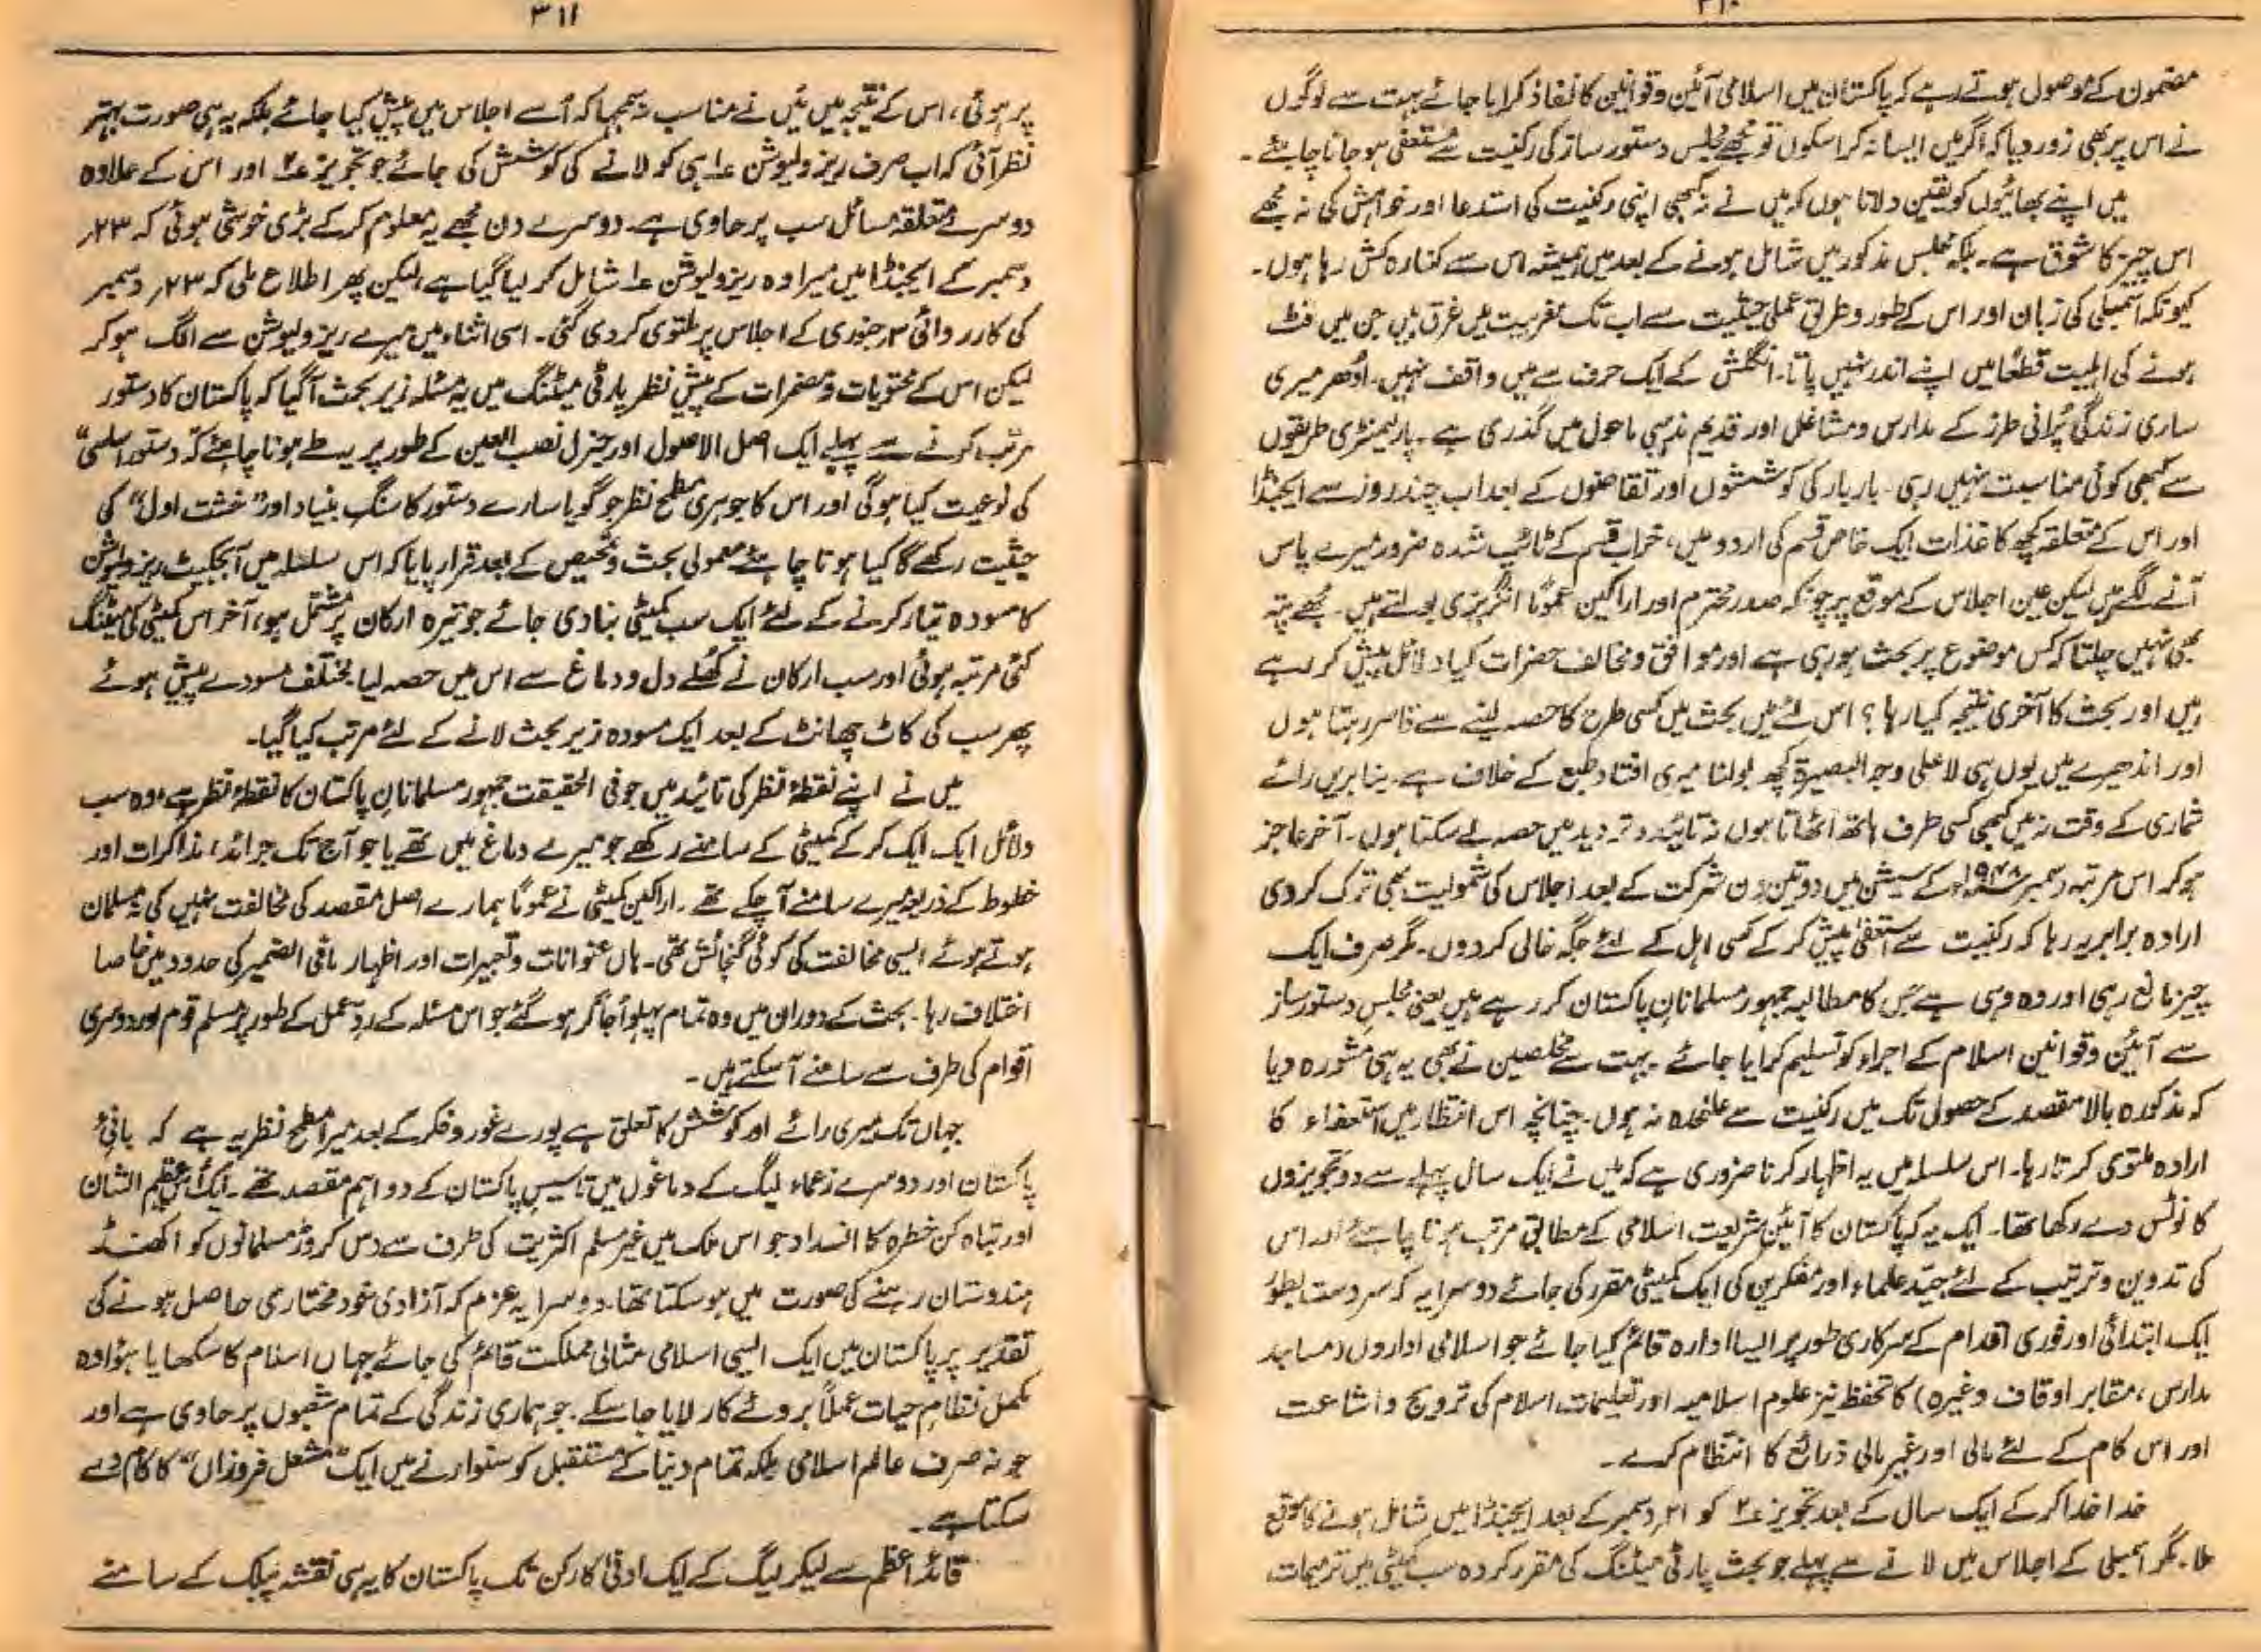 ۳۱۰
مضمون کے موصول ہوتے رہے کہ پاکستان میں اسلامی آئین و قوانین کا نفاذ کرایا جائے بہت سے لوگوں
نے اس پر بھی زور دیا کہ اگر میں ایسا نہ کرا سکوں تو مجھے مجلس دستور ساز کی رکنیت سے مستعفی ہو جانا چاہئے۔
میں اپنے بھائیوں کو یقین دلاتا ہوں کہ میں نے نہ کبھی اپنی رکنیت کی استدعا اور خواہش کی نہ مجھے
اس چیز کا شوق ہے۔ بلکہ مجلس مذکور میں شامل ہونے کے بعد میں ہمیشہ اس سے کنارہ کش رہا ہوں۔
کیونکہ اسمبلی کی زبان اور اس کے طور و طریق عملی حیثیت سے اب تک مغربیت میں غرق ہیں جن میں فٹ
ہونے کی اہلیت قطعًا میں اپنے اندر نہیں پاتا۔ انگلش کے ایک حرف سے میں واقف نہیں۔ اُدھر میری
ساری زندگی پُرانی طرز کے مدارس و مشاغل اور قدیم مذہبی ماحول میں گذری ہے۔ پارلیمنٹری طریقوں
سے کبھی کوئی مناسبت نہیں رہی۔ بار بار کی کوششوں اور تقاضوں کے بعد اب چند روز سے ایجنڈا
اور اس کے متعلقہ کچھ کاغذات ایک خاص قسم کی اردو میں، خراب قسم کے ٹائپ شدہ ضرور میرے پاس
آنے لگے ہیں لیکن عین اجلاس کے موقع پر چونکہ صدر محترم اور اراکین عمومًا انگریزی بولتے ہیں۔ مجھے پتہ
بھی نہیں چلتا کہ کس موضوع پر بحث ہو رہی ہے اور موافق و مخالف حضرات کیا دلائل پیش کر رہے
ہیں اور بحث کا آخری نتیجہ کیا رہا؟ اس لئے میں بحث میں کسی طرح کا حصہ لینے سے قاصر رہتا ہوں
اور اندھیرے میں یوں ہی لا علی وجہ البصیرۃ کچھ بولنا میری افتاد طبع کے خلاف ہے۔ بنابریں رائے
شماری کے وقت نہ میں کبھی کسی طرف ہاتھ اٹھاتا ہوں نہ تائید و تردید میں حصہ لے سکتا ہوں۔ آخر عاجز
ہو کر اس مرتبہ دسمبر ۱۹۴۸ء کے سیشن میں دو تین دن شرکت کے بعد اجلاس کی شمولیت بھی ترک کر دی
ارادہ برابر یہ رہا کہ رکنیت سے استعفیٰ پیش کر کے کسی اہل کے لئے جگہ خالی کر دوں۔ مگر صرف ایک
چیز مانع رہی اور وہ وہی ہے جس کا مطالبہ جمہور مسلمانانِ پاکستان کر رہے ہیں یعنی مجلسِ دستور ساز
سے آئین و قوانین اسلام کے اجراء کو تسلیم کرایا جائے۔ بہت سے مخلصین نے بھی یہ ہی مشورہ دیا
کہ مذکورہ بالا مقصد کے حصول تک میں رکنیت سے علٰحدہ نہ ہوں۔ چنانچہ اس انتظار میں استعفاء کا
ارادہ ملتوی کرتا رہا۔ اس سلسلہ میں یہ اظہار کرنا ضروری ہے کہ میں نے ایک سال پہلے سے دو تجویزوں
کا نوٹس دے رکھا تھا۔ ایک یہ کہ پاکستان کا آئین شریعت اسلامی کے مطابق مرتب ہونا چاہئے اور اس
کی تدوین و ترتیب کے لئے جیّد علماء اور مفکرین کی ایک کمیٹی مقرر کی جائے دوسرا یہ کہ سردست بطور
ایک ابتدائی اور فوری اقدام کے سرکاری طور پر ایسا ادارہ قائم کیا جائے جو اسلامی اداروں (مساجد
مدارس، مقابر اوقاف وغیرہ) کا تحفظ نیز علوم اسلامیہ اور تعلیمات اسلام کی ترویج و اشاعت
اور اس کام کے لئے مالی اور غیر مالی ذرائع کا انتظام کرے۔
خدا خدا کر کے ایک سال کے بعد تجویز ۲ کو ۲۱ دسمبر کے بعد ایجنڈا میں شامل ہونے کا موقع
ملا۔ مگر اسمبلی کے اجلاس میں لانے سے پہلے جو بحث پارٹی میٹنگ کی مقرر کردہ سب کمیٹی میں ترمیمات
۳۱۱
پر ہوئی، اس کے نتیجہ میں میں نے مناسب نہ سمجھا کہ اُسے اجلاس میں پیش کیا جائے بلکہ یہ ہی صورت بہتر
نظر آئی کہ اب صرف ریزولیوشن ۱ ہی کو لانے کی کوشش کی جائے جو تجویز ۲ اور اس کے علاوہ
دوسرے متعلقہ مسائل سب پر حاوی ہے۔ دوسرے دن مجھے یہ معلوم کر کے بڑی خوشی ہوئی کہ ۲۳؍
دسمبر کے ایجنڈا میں میرا وہ ریزولیوشن ۱ شامل کر لیا گیا ہے، لیکن پھر اطلاع ملی کہ ۲۳؍ دسمبر
کی کارروائی ۳؍ جنوری کے اجلاس پر ملتوی کر دی گئی۔ اسی اثناء میں میرے ریزولیوشن سے الگ ہو کر
لیکن اس کے محتویات و مضمرات کے پیش نظر پارٹی میٹنگ میں یہ مسئلہ زیر بحث آ گیا کہ پاکستان کا دستور
مرتب کرنے سے پہلے ایک اصل الاصول اور جنرل نصب العین کے طور پر یہ طے ہونا چاہئے کہ دستور اساسی
کی نوعیت کیا ہوگی اور اس کا جوہری مطمح نظر جو گویا سارے دستور کا سنگِ بنیاد اور ”خشت اول“ کی
حیثیت رکھے گا کیا ہونا چاہئے معمولی بحث و تمحیص کے بعد قرار پایا کہ اس سلسلہ میں آبجیکٹ ریزولیوشن
کا مسودہ تیار کرنے کے لئے ایک سب کمیٹی بنا دی جائے جو تیرہ ارکان پر مشتمل ہو، آخر اس کمیٹی کی میٹنگ
کئی مرتبہ ہوئی اور سب ارکان نے کھُلے دل و دماغ سے اس میں حصہ لیا مختلف مسودے پیش ہوئے
پھر سب کی کاٹ چھانٹ کے بعد ایک مسودہ زیر بحث لانے کے لئے مرتب کیا گیا۔
میں نے اپنے نقطۂ نظر کی تائید میں جو فی الحقیقت جمہور مسلمانانِ پاکستان کا نقطۂ نظر ہے، وہ سب
دلائل ایک ایک کر کے کمیٹی کے سامنے رکھے جو میرے دماغ میں تھے یا جو آج تک جرائد، مذاکرات اور
خطوط کے ذریعہ میرے سامنے آ چکے تھے۔ اراکین کمیٹی نے عمومًا ہمارے اصل مقصد کی مخالفت نہیں کی نہ مسلمان
ہوتے ہوئے ایسی مخالفت کی کوئی گنجائش تھی۔ ہاں عنوانات و تعبیرات اور اظہار مافی الضمیر کی حدود میں خاصا
اختلاف رہا۔ بحث کے دوران میں وہ تمام پہلو اُجاگر ہو گئے جو اس مسئلہ کے ردِ عمل کے طور پر مسلم قوم اور دوسری
اقوام کی طرف سے سامنے آ سکتے ہیں۔
جہاں تک میری رائے اور کوشش کا تعلق ہے پورے غور و فکر کے بعد میرا مطمح نظر یہ ہے کہ بانئ
پاکستان اور دوسرے زعماء لیگ کے دماغوں میں تاسیسِ پاکستان کے دو اہم مقصد تھے۔ ایک اس عظیم الشان
اور تباہ کن خطرہ کا انسداد جو اس ملک میں غیر مسلم اکثریت کی طرف سے دس کروڑ مسلمانوں کو اکھنڈ
ہندوستان رہنے کی صورت میں ہو سکتا تھا۔ دوسرا یہ عزم کہ آزادی خود مختاری حاصل ہونے کی
تقدیر پر پاکستان میں ایک ایسی اسلامی مثالی مملکت قائم کی جائے جہاں اسلام کا سکھایا ہوٗا وہ
مکمل نظامِ حیات عملًا بروئے کار لایا جا سکے۔ جو ہماری زندگی کے تمام شعبوں پر حاوی ہے اور
جو نہ صرف عالم اسلامی بلکہ تمام دنیا کے مستقبل کو سنوارنے میں ایک ”مشعل فروزاں“ کا کام دے
سکتا ہے۔
قائد اعظم سے لیکر لیگ کے ایک ادنیٰ کارکن تک پاکستان کا یہ ہی نقشہ پبلک کے سامنے